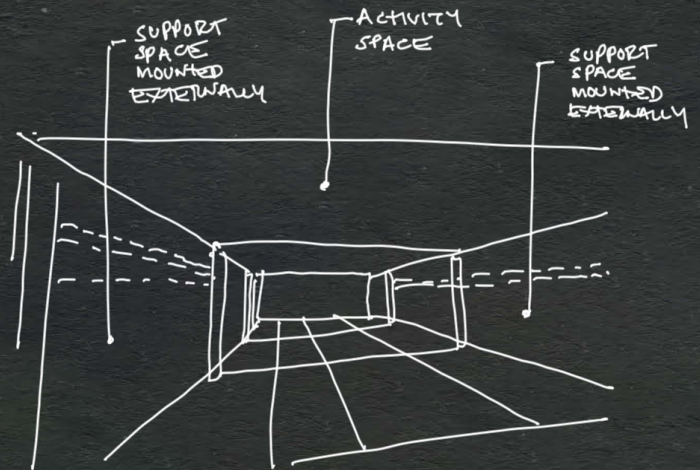 SUPPORT
SPACE
MOUNTED
EXTERNALLY
ACTIVITY
SPACE
SUPPORT
SPACE
MOUNTED
EXTERNALLY